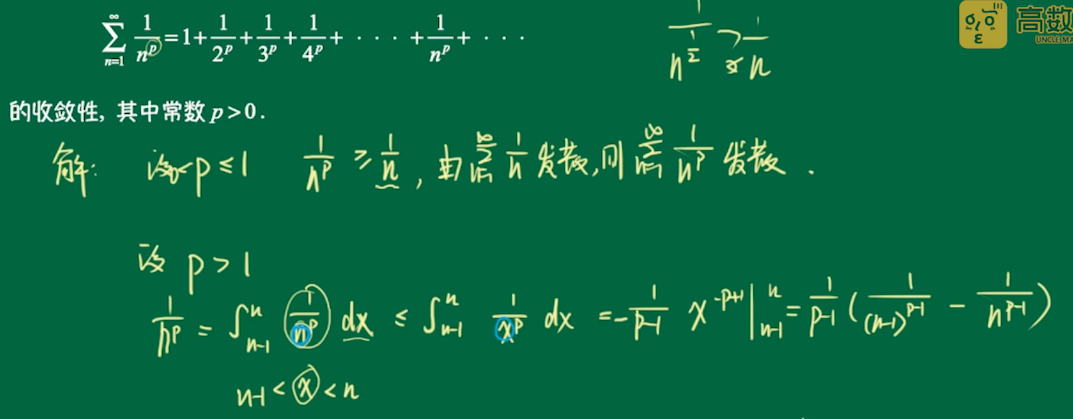 ∞∑n=1 1/n^p = 1 + 1/2^p + 1/3^p + 1/4^p + · · · + 1/n^p + · · ·
1/n^(1/2) > 1/n
高数
UNCLE MA
的收敛性, 其中常数 p>0.
解: 设 p ≤ 1 1/n^p ≥ 1/n, 由 ∞∑n=1 1/n 发散, 则 ∞∑n=1 1/n^p 发散.
设 p > 1
1/n^p = ∫_{n-1}^{n} (1/n^p) dx ≤ ∫_{n-1}^{n} 1/x^p dx = -1/(p-1) x^{-p+1} |_{n-1}^{n} = 1/(p-1) (1/(n-1)^{p-1} - 1/n^{p-1})
n-1 < x < n